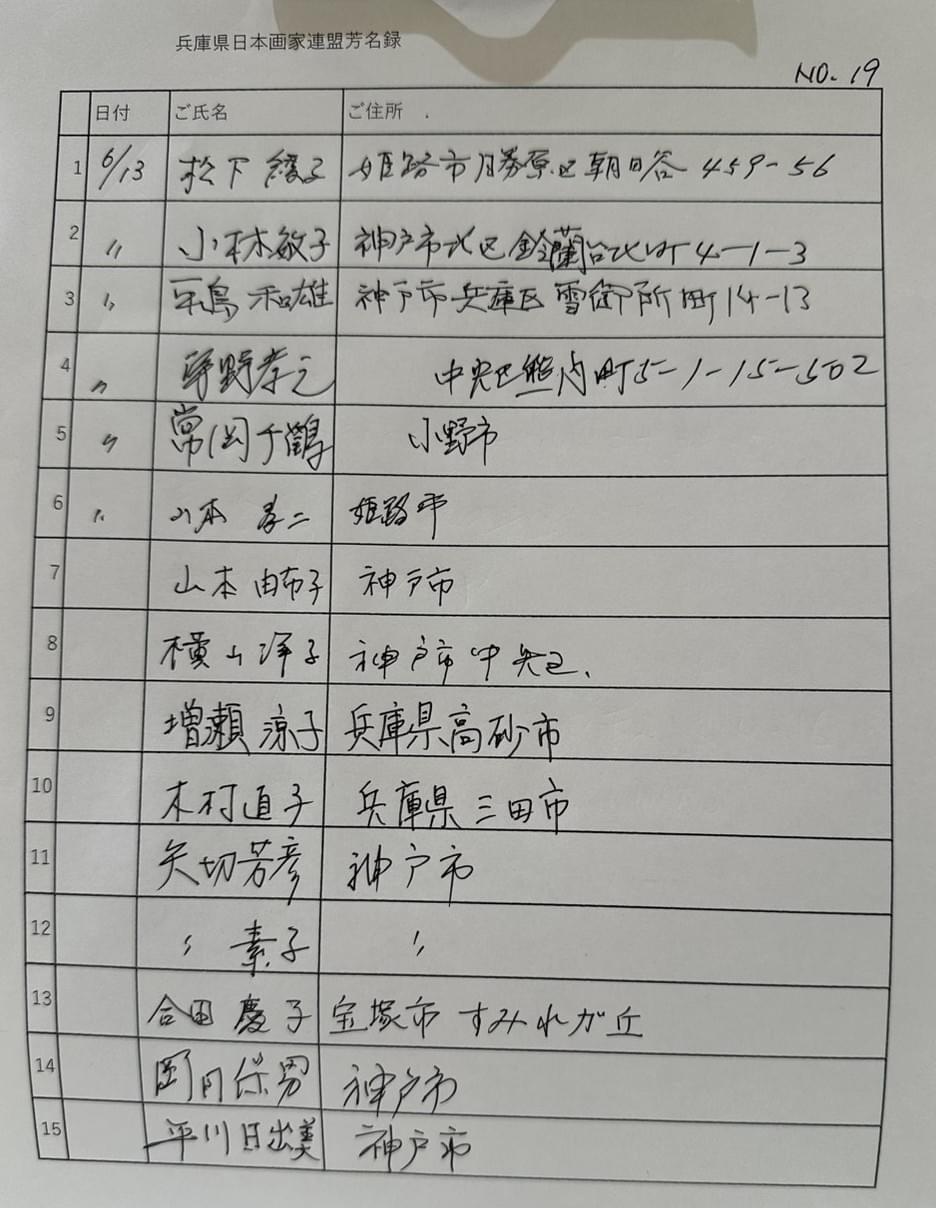 兵庫県日本画家連盟芳名録
NO. 19
日付 ご氏名 ご住所
1 6/13 松下 綾子 姫路市勝原区朝日谷 459-56
2 〃 小林敏子 神戸市北区鈴蘭台北町 4-1-3
3 〃 平島 和雄 神戸市兵庫区雪御所町14-13
4 〃 野孝之 中央区熊内町5-1-15-502
5 〃 常岡千鶴 小野市
6 〃 山本 孝二 姫路市
7 山本 由布子 神戸市
8 横山 洋子 神戸市中央区.
9 増瀬 涼子 兵庫県高砂市
10 木村直子 兵庫県三田市
11 矢切芳彦 神戸市
12 〃 素子 〃
13 合田 慶子 宝塚市 すみれが丘
14 保男 神戸市
15 平川日出美 神戸市